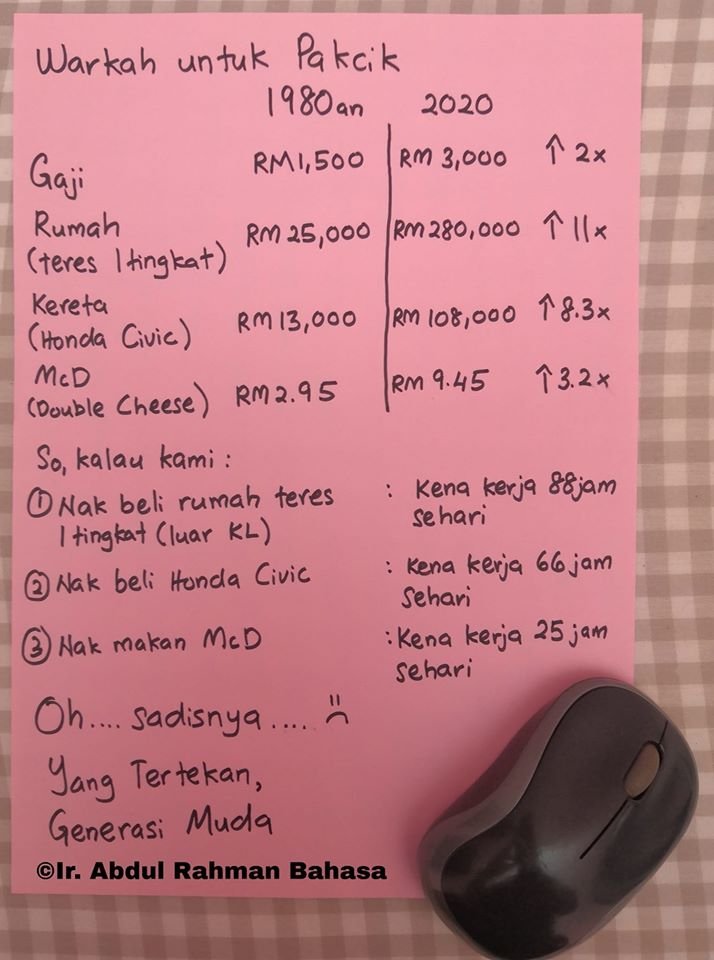 Warkah untuk Pakcik
1980an 2020
Gaji RM1,500 RM 3,000 ↑ 2x
Rumah
(teres 1tingkat) RM 25,000 RM 280,000 ↑ 11x
Kereta
(Honda Civic) RM 13,000 RM 108,000 ↑ 8.3x
McD
(Double Cheese) RM 2.95 RM 9.45 ↑ 3.2x
So, kalau kami :
① Nak beli rumah teres : Kena kerja 88jam
1tingkat (luar KL) sehari
② Nak beli Honda Civic : Kena kerja 66jam
sehari
③ Nak makan McD : Kena kerja 25jam
sehari
Oh.... sadisnya....
Yang Tertekan,
Generasi Muda
©Ir. Abdul Rahman Bahasa